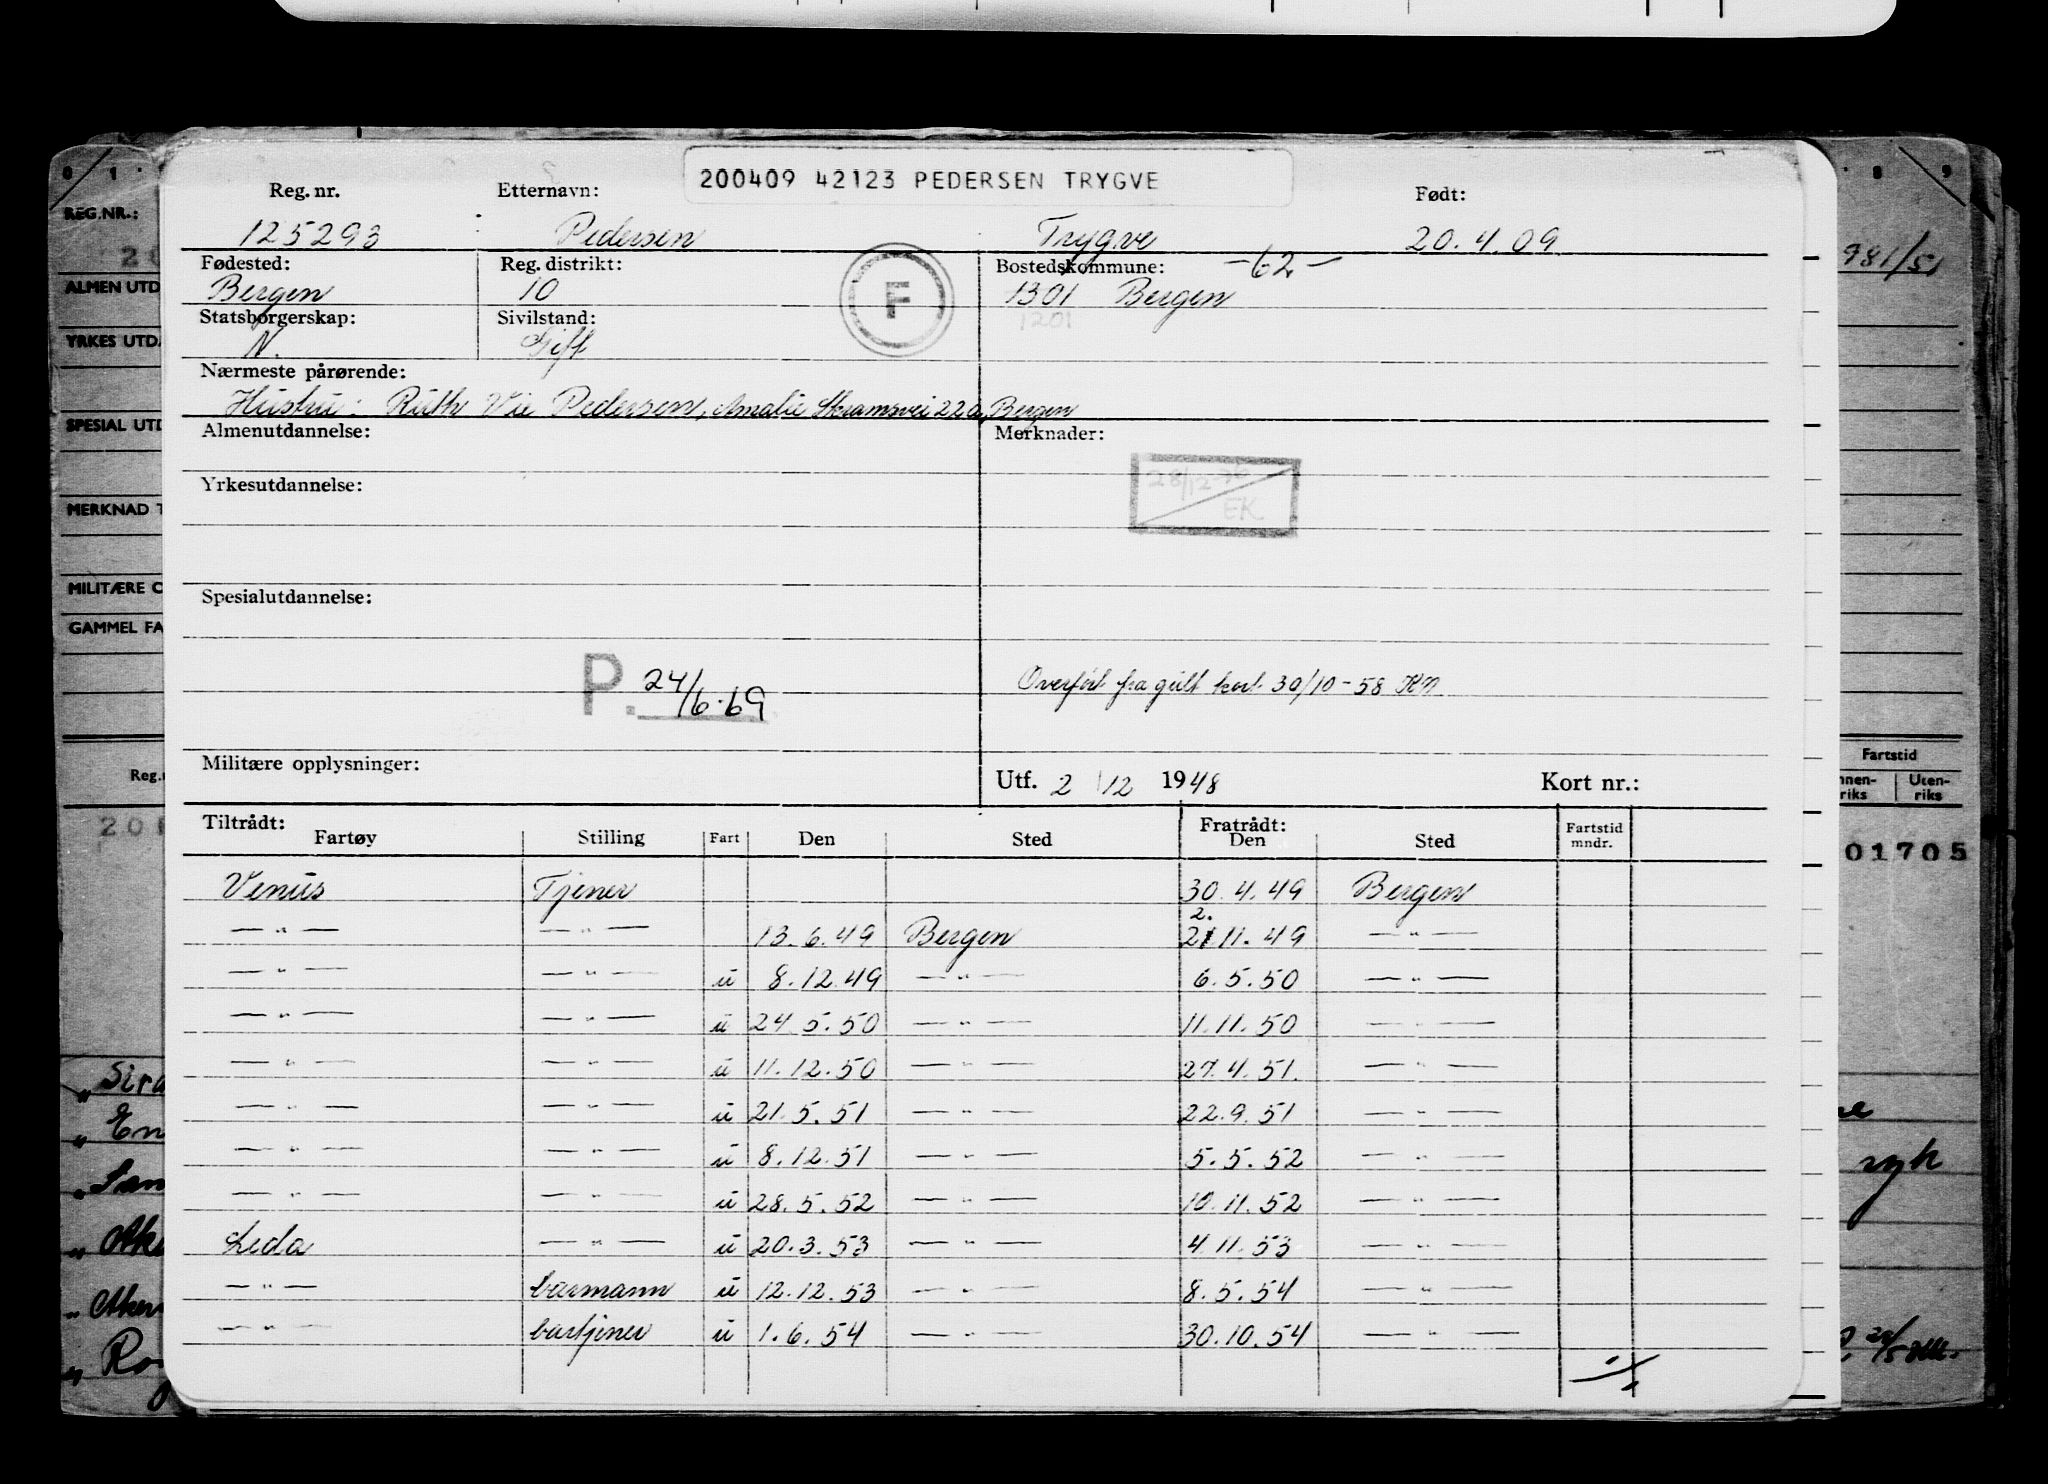 200409 42123 PEDERSEN TRYGVE
Reg. nr. Etternavn: Født:
125293 Pedersen Trygve 20.4.09
Fødested: Reg. distrikt: Bostedskommune: -62-
Bergen 10 F 1301 Bergen
Statsborgerskap: Sivilstand: 1201
N. Gift
Nærmeste pårørende:
Hustru: Ruth Vie Pedersen, Amalie Skramsvei 22a, Bergen
Almenutdannelse: Merknader:
28/12-70
Yrkesutdannelse:
EK
Spesialutdannelse:
P. 24/6.69
Overført fra gult kort 30/10-58 KN
Militære opplysninger: Utf. 2/12 1948 Kort nr.:
Tiltrådt: Fratrådt: Fartstid
Fartøy Stilling Fart Den Sted Den Sted mndr.
Venus Tjener 30.4.49 Bergen
2.
—"— —"— 13.6.49 Bergen 21 11.49 —"—
—"— —"— u 8.12.49 —"— 6.5.50 —"—
—"— —"— u 24 5.50 —"— 11.11.50 —"—
—"— —"— u 11.12.50 —"— 27.4.51. —"—
—"— —"— u 21.5.51 —"— 22.9.51 —"—
—"— —"— u 8.12.51 —"— 5.5.52 —"—
—"— —"— u 28.5.52 —"— 10.11.52 —"—
Leda —"— u 20.3.53 —"— 4.11.53 —"—
—"— barmann u 12.12.53 —"— 8.5.54 —"—
—"— bartjener u 1.6.54 —"— 30.10.54 —"—
·/.
0 1
REG.NR.:
2
ALMEN UTD
YRKES UTD.
SPESIAL UTD
MERKNAD T
MILITÆRE O
GAMMEL FA
Reg.n
201
" En
" San
" Ake
" Aker
" Ro
8 9
981/51
Fartstid
nnen-riks Uten-riks
01705